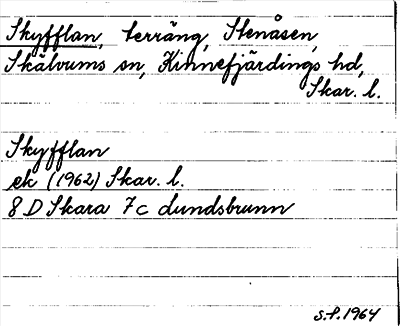 Skyfflan, terräng, Stenåsen,
Skälvums sn, Kinnefjärdings hd,
Skar. l.
Skyfflan
ek (1962) Skar. l.
8 D Skara 7c Lundsbrunn
S.F. 1964